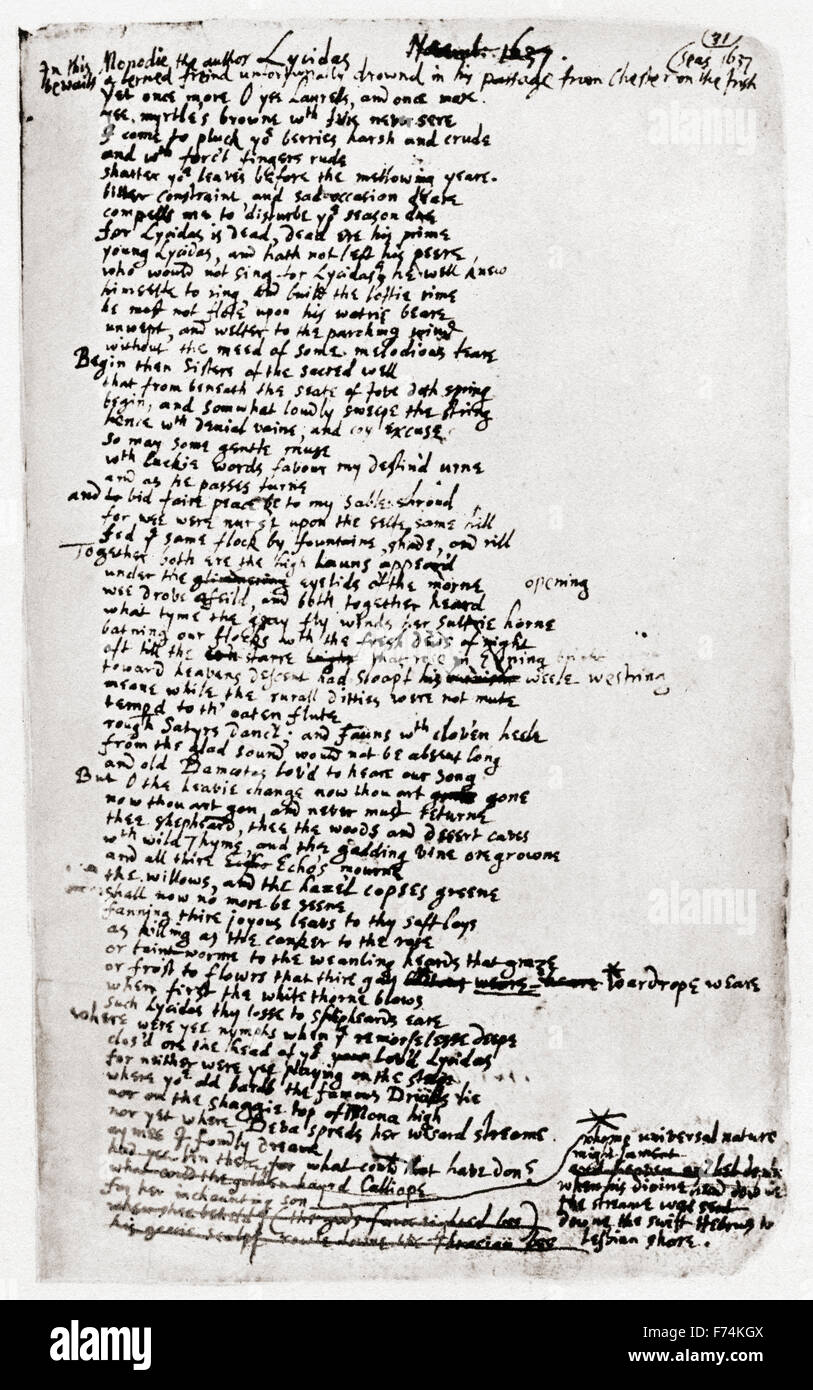 Lycidas
Novemb: 1637.
(31)
In this Monodie the author bewails a lerned freind unfortunatly drownd in his passage from Chester on the Irish Seas 1637
Yet once more O yee Laurells, and once more
yee myrtle's browne wth Ivie never sere
I come to pluck yor berries harsh and crude
and wth forc't fingers rude
shatter yor leaves before the mellowing yeare.
bitter constraint, and sad occasion deare
compells me to disturbe yor season due
for Lycidas is dead, dead ere his prime
young Lycidas, and hath not left his peere
who would not sing for Lycidas, he well knew
himselfe to sing, and build the loftie rime
he must not flote upon his watrie beare
unwept, and welter to the parching wind
without the meed of some melodious teare
Begin then Sisters of the sacred well
that from beneath the seate of Jove doth spring
begin, and somwhat loudly sweepe the string
hence wth denial vaine, and coy excuse
so may some gentle muse
wth luckie words favour my destin'd urne
and as he passes turne
and to bid faire peace be to my sable shroud
for wee were nurs't upon the selfe same hill
fed ye same flock by fountaine, shade, and rill
Together both ere the high launs appear'd
under the glimmering eyelids of the morne opening
wee drove afeild, and both together heard
what tyme the gray fly winds her sultrie horne
batning our flocks wth the fresh dews of night
oft till the starre bright that rose in Evning bright
toward heavens descent had sloapt his weele westring
meane while the rurall ditties were not mute
temper'd to th' oaten flute
rough Satyrs danc't, and Fauns wth clov'en heele
from the glad sound would not be absent long
and old Damœtas lov'd to heare our song
But O the heavie change now thou art gone
now thou art gon, and never must returne
thee shepheard, thee the woods and desert caves
wth wild Thyme, and the gadding vine oregrowne
and all thire Echo's mourne
the willows, and the hazel copses greene
shall now no more be seene
fanning thire joyous leavs to thy soft lays
as killing as the canker to the rose
or taint-worme to the weanling heards that graze
or frost to flowrs that thire gay weare wardrope weare
when first the white thorne blows
such Lycidas thy losse to shepheards eare
where were yee nymphs when ye remorselesse deepe
clos'd ore the head of yor lov'd Lycidas
for neither were yee playing on the steepe
where yor old bards the famous Druids lie
nor on the shaggie top of Mona high
nor yet where Deva spreds her wisard streame.
ay mee I fondly dreame
had yee bin there, for what could that have don?
what could the golden hayrd Calliope
for her inchaunting son
when she beheld (the gods farre sighted bee)
his goarie scalpe rowle downe the Thracian lee
whome universal nature
might lament
and heaven and hel
when his divine head downe
the streame was sent
downe the swift Hebrus to
Lesbian shore.
alamy
alamy
alamy
alamy
Image ID: F74KGX
www.alamy.com